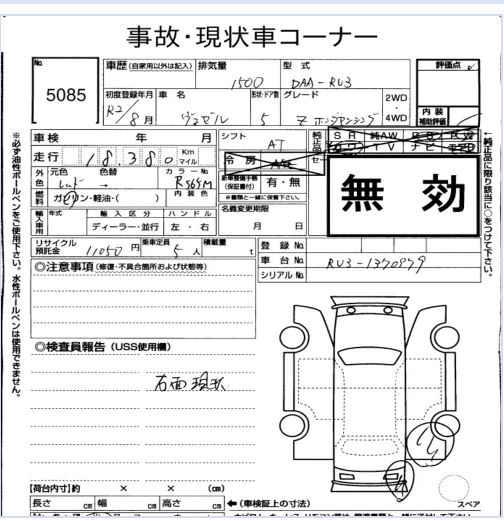 事故・現状車コーナー
No. 5085
車歴 (自家用以外は記入) 排気量 1500 型式 DAA-RU3 評価点
初度登録年月 R2/8月 車名 ヴェゼル 形状・ドア数 5 グレード Z ホンダセンシング 2WD・4WD 内装補助評価
車検 年 月 シフト AT 純正品
走行 18,380 Km マイル 冷房
外色 元色 レッド 色替 カラーNo. R565M 新車整備手帳(保証書付) 有・無
燃料 ガソリン・軽油・( ) 内装色 ※書類と一緒に保管下さい。
輸入車用 年式 輸入区分 ハンドル 名義変更期限
ディーラー・並行 左・右 月 日
無効
リサイクル預託金 11050円 乗車定員 5人 積載量 t 登録No.
車台No. RU3-1370979
シリアルNo.
◎注意事項 (修復・不具合箇所および状態等)
◎検査員報告 (USS使用欄)
右面 現状
【荷台内寸】約 × × (cm) スペア
長さ cm 幅 cm 高さ cm ←(車検証上の寸法)
※必ず油性ボールペンをご使用下さい。水性ボールペンは使用できません。
←純正品に限り該当に○をつけて下さい。